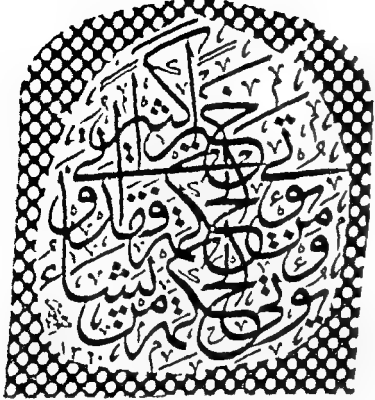 يؤتى الحكمة من يشاء
ومن يؤت الحكمة فقد أوتى
خيرا كثيرا